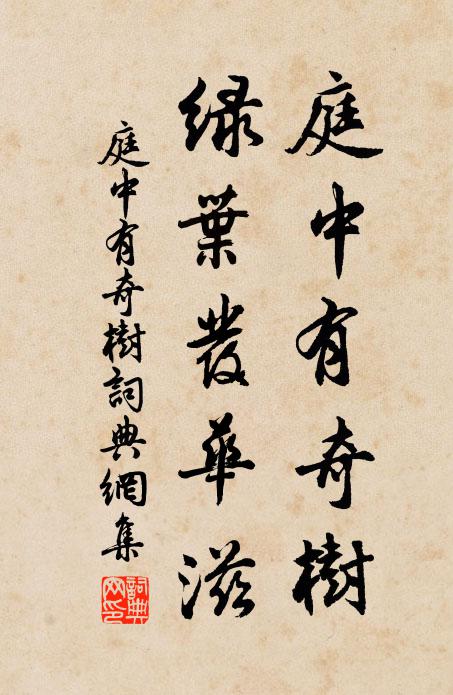 庭中有奇樹
綠葉發華滋
庭中有奇樹詞典網集
詞典网印